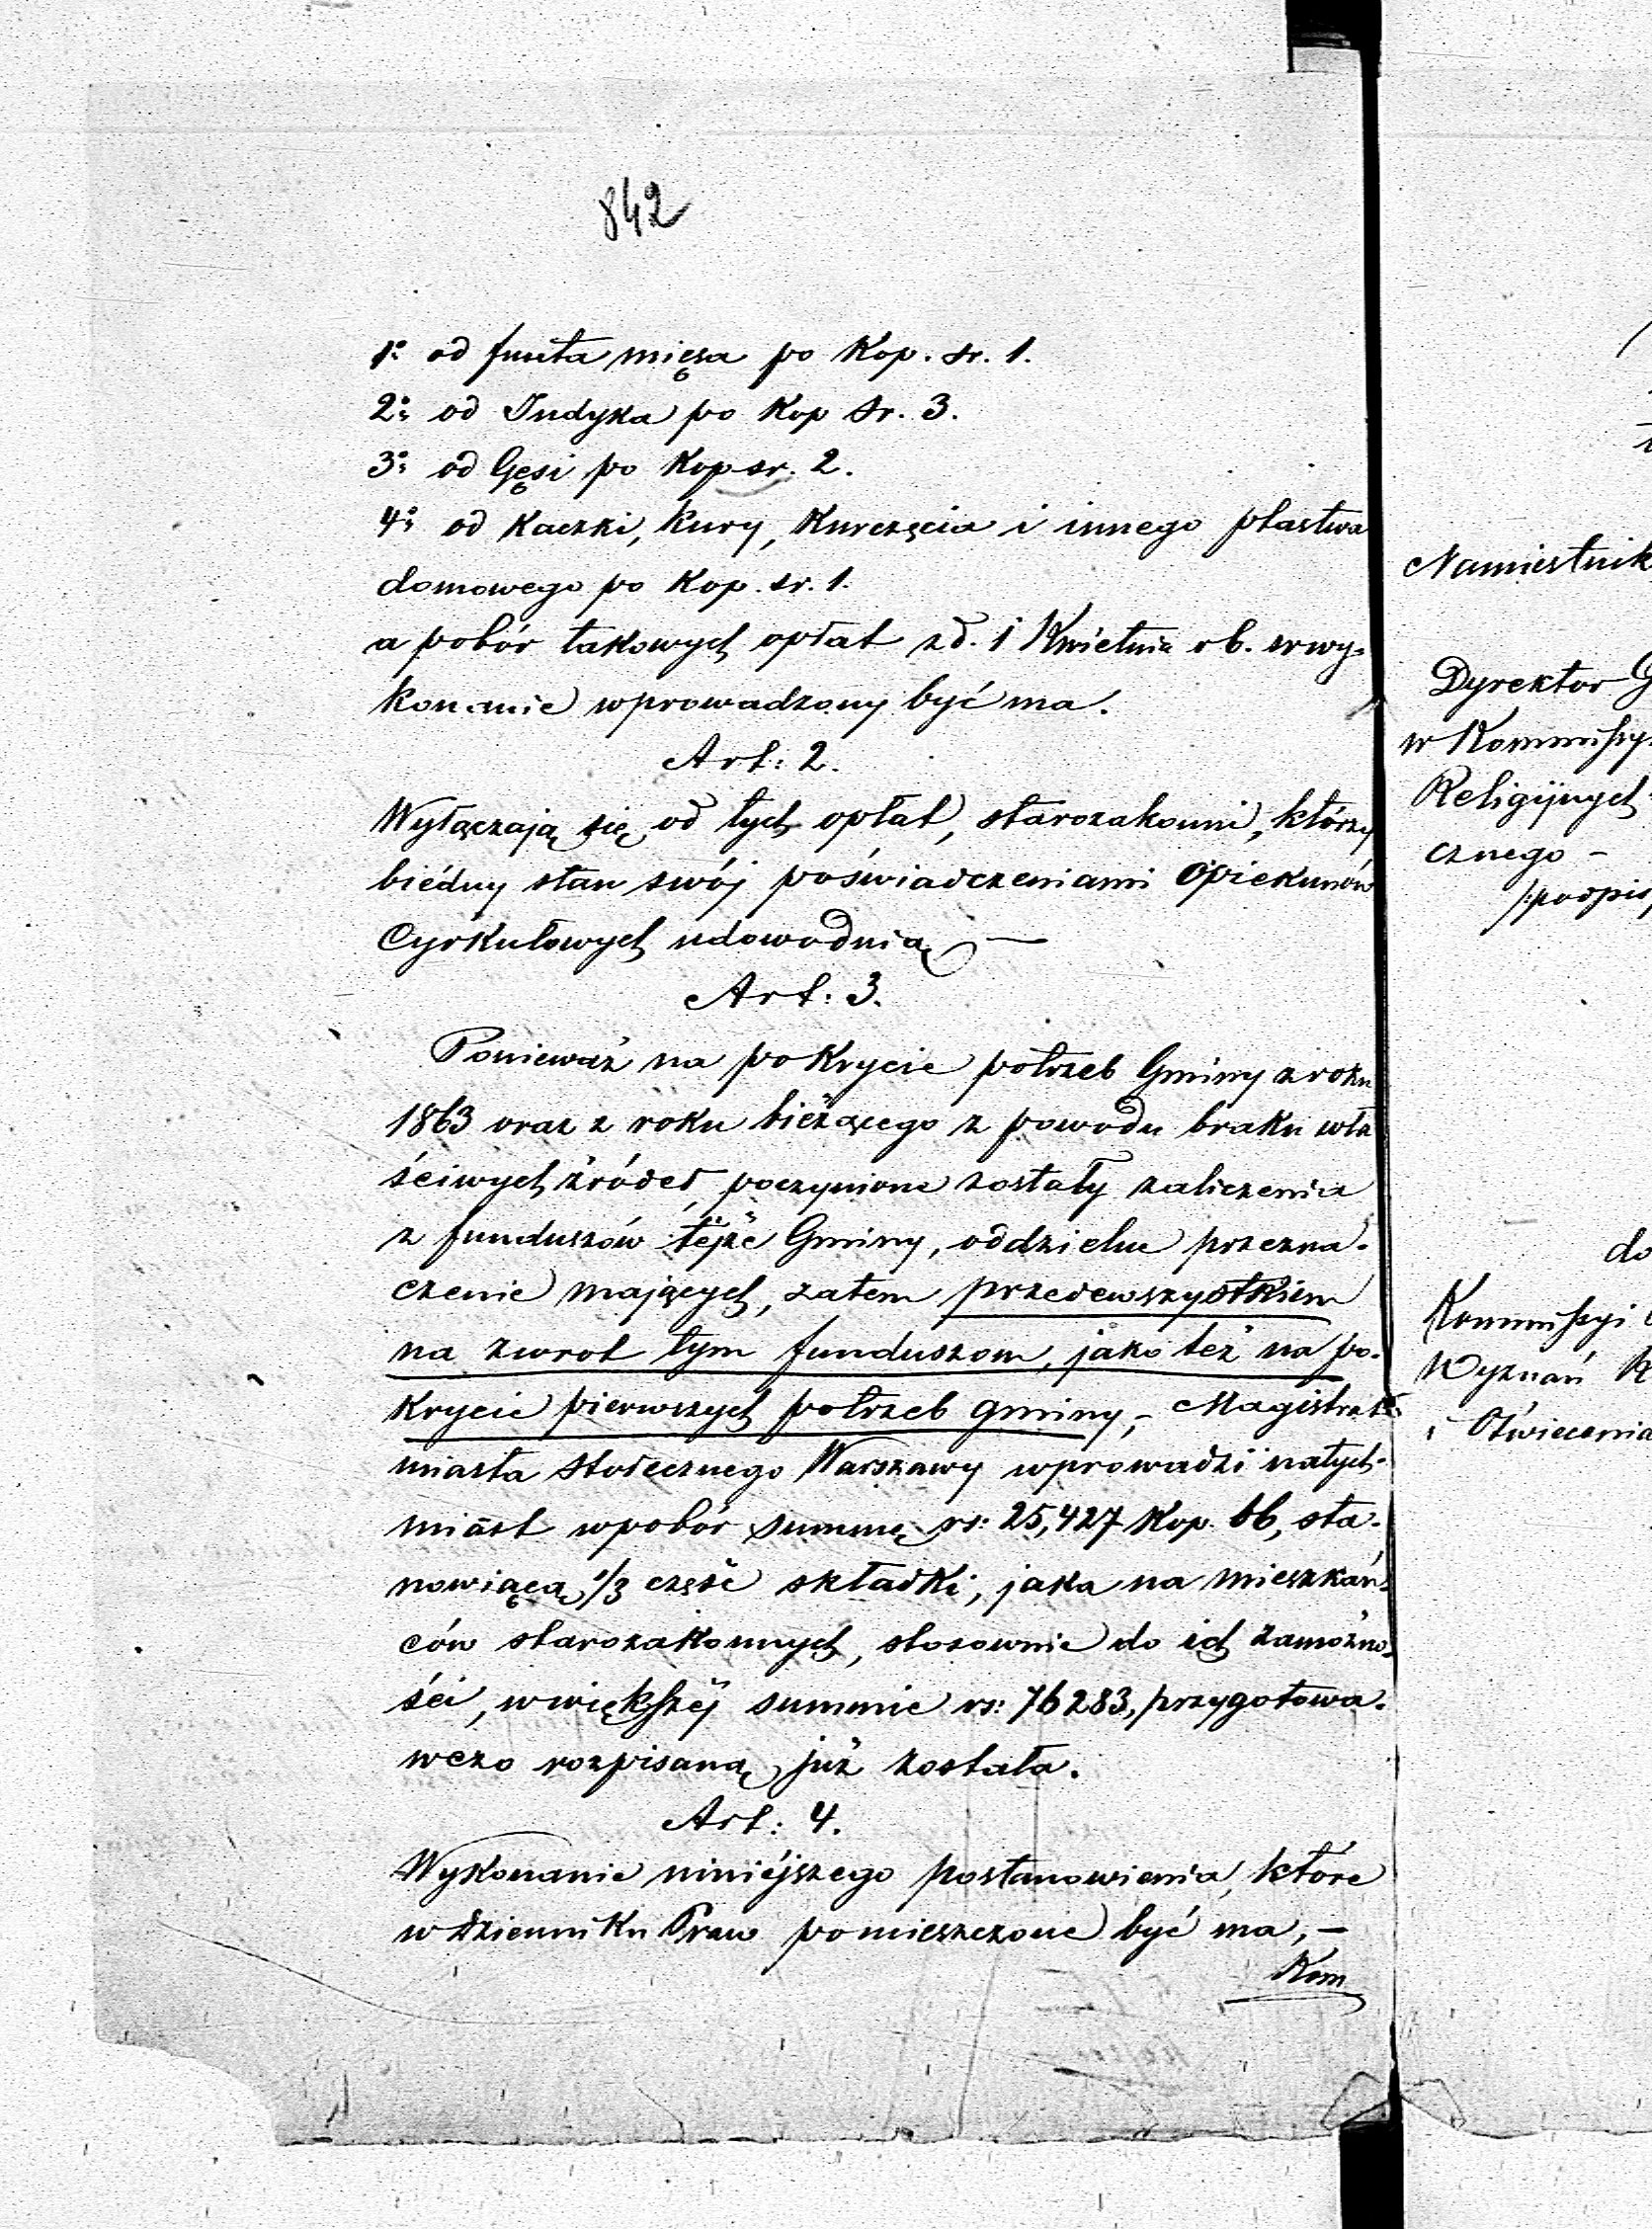 842
1o. od funta mięsa po Kop. sr. 1.
2o. od Indyka po Kop sr. 3.
3o. od Gęsi po Kop sr. 2.
4o. od Kaczki, Kury, Kurczęcia i innego ptastwa
domowego po Kop. sr. 1.
a pobór takowych opłat z d. 1 Kwietnia r b. w wy-
konanie wprowadzony być ma.
Art: 2.
Wyłączają się od tych opłat, starozakonni, którzy
biédny stan swój poświadczeniami Opiekunów
Cyrkułowych udowodnią —
Art: 3.
Ponieważ na pokrycie potrzeb Gminy z roku
1863 oraz z roku bieżącego z powodu braku wła
ściwych źródeł, poczynione zostały zaliczenia
z funduszów téjże Gminy, oddzielne przezna-
czenie mających, zatem przedewszystkiem
na zwrot tym funduszom, jako też na po-
krycie pierwszych potrzeb gminy, – Magistrat
miasta stołecznego Warszawy wprowadzi natych-
miast w pobór summę rs: 25,427 Kop. 66, sta-
nowiącą 1/3 część składki, jaka na mieszkań-
ców starozakonnych, stosownie do ich zamożno-
ści, w większéj summie rs: 76283, przygotowa-
wczo rozpisaną już została.
Art: 4.
Wykonanie niniéjszego postanowienia, które
w dzienniku Praw pomieszczone być ma, –
Kom
Namiestnik
Dyrektor G
w Kommissy
Religijnych
cznego –
/:podpis
do
Kommissyi
Wyznań R
i Oświecenia